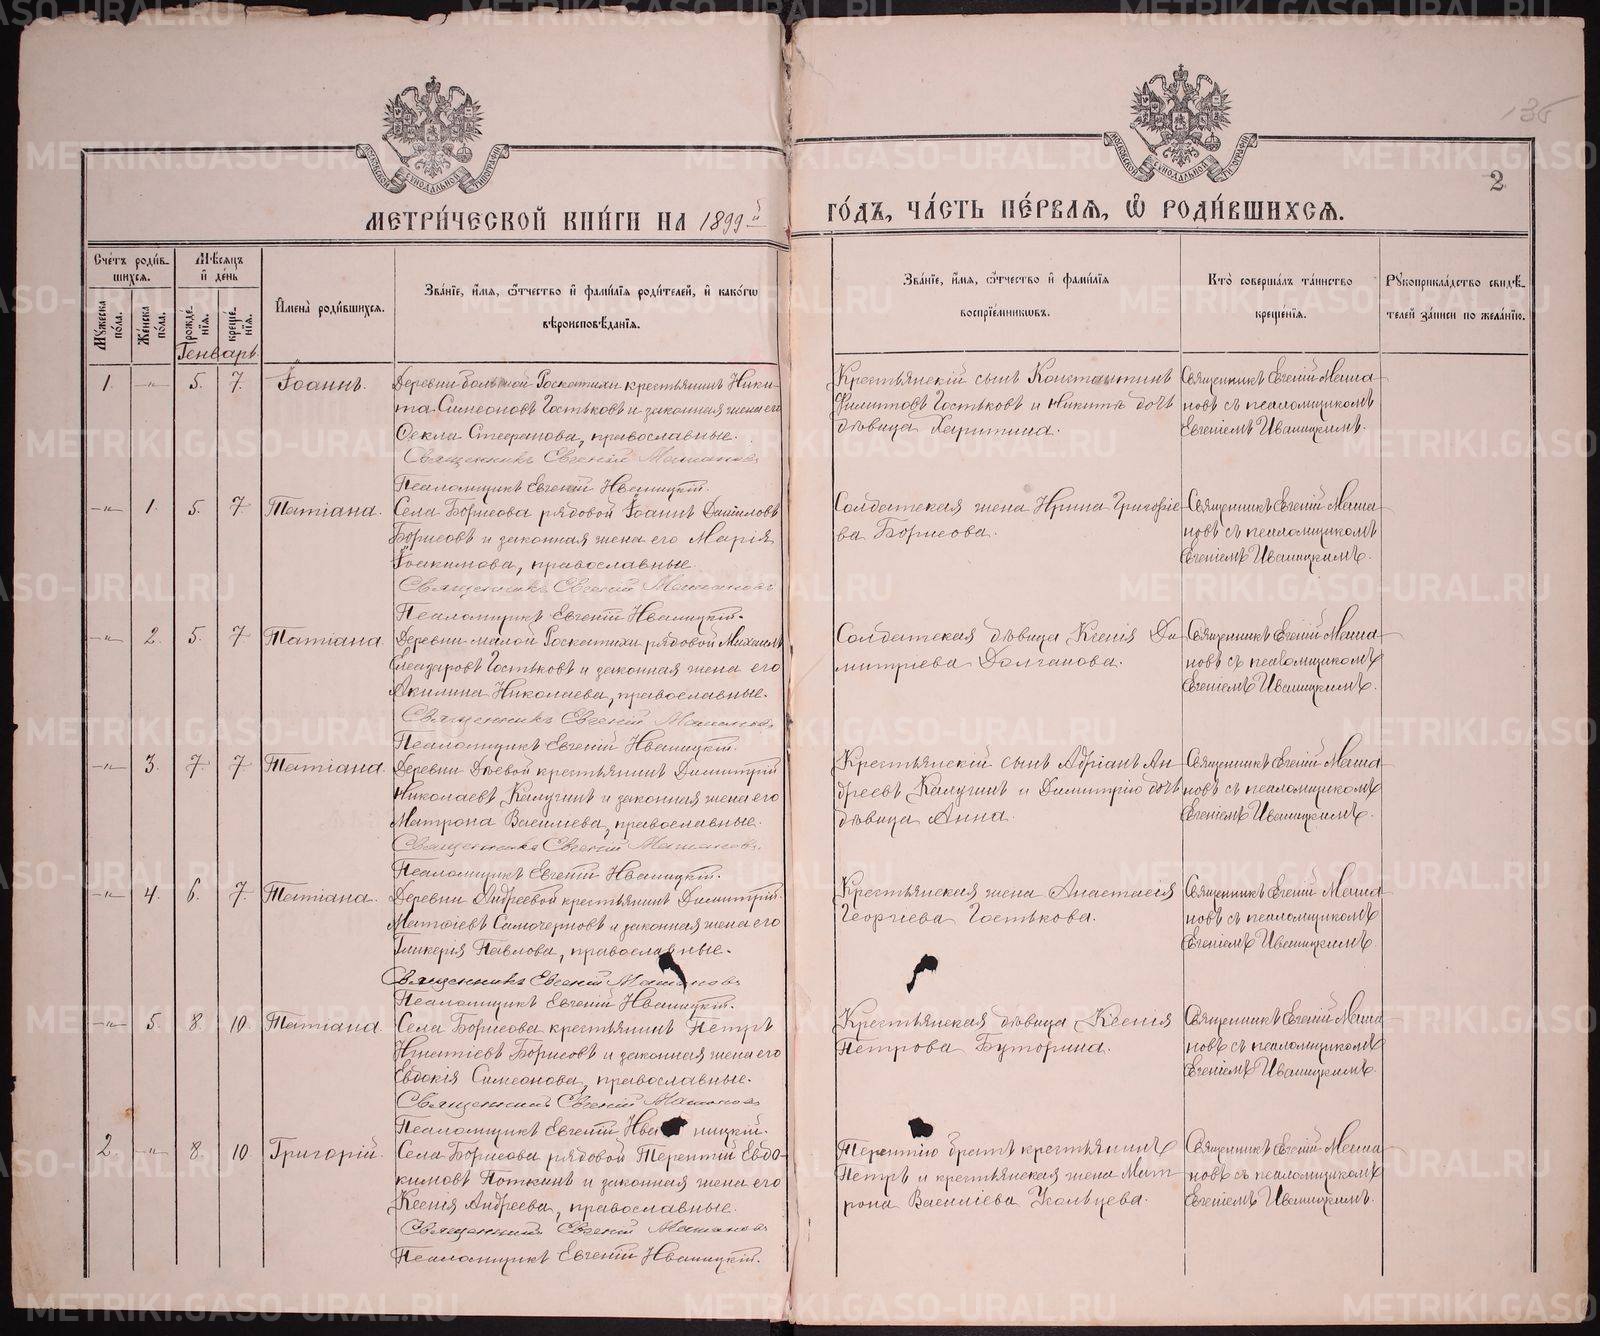 136
2
МОСКОВСКОЙ СУНОДАЛЬНОЙ ТИПОГРАФІИ
МОСКОВСКОЙ СУНОДАЛЬНОЙ ТИПОГРАФІИ
МЕТРИ́ЧЕСКОЙ КНИ́ГИ НА 1899й
ГО́ДЪ, ЧА́СТЬ ПЕ́РВАЯ, Ѡ҆ РОДИ́ВШИХСЯ.
Сче́тъ роди́в-
шихся.
Мꙋжеска по́ла.
Же́нска по́ла.
Мѣ́сяцъ
и҆ де́нь
рожде́-
нїя.
креще́-
нїя.
Генварь
И҆мена̀ роди́вшихся.
Зва́нїе, и҆́мя, ѻ҆́тчество и҆ фами́лїя роди́телей, и҆ како́гѡ
вѣроисповѣ́данїя.
Зва́нїе, и҆́мя, ѻ҆́тчество и҆ фами́лїя
воспрїе́мникѡвъ.
Кто̀ соверша́лъ та́инство
креще́нїя.
Рꙋкоприкла́дство свидѣ́-
телей за́писи по жела́нїю.
1. —„— 5. 7. Іоаннъ.
Деревни большой Роскатихи крестьянинъ Ники-
та Симеоновъ Гостьковъ и законная жена его
Ѳекла Стефанова, православные.
Священникъ Евгеній Машановъ
Псаломщикъ Евгеній Иваницкій.
Крестьянскій сынъ Константинъ
Филитовъ Гостьковъ и Никитѣ дочь
дѣвица Харитина.
Священникъ Евгеній Маша-
новъ съ псаломщикомъ
Евгеніемъ Иваницкимъ.
—„— 1. 5. 7. Татіана.
Села Борисова рядовой Іоаннъ Даниловъ
Борисовъ и законная жена его Марія
Іоакимова, православные.
Священникъ Евгеній Машановъ
Псаломщикъ Евгеній Иваницкій.
Солдатская жена Ирина Григорье-
ва Борисова.
Священникъ Евгеній Маша-
новъ съ псаломщикомъ
Евгеніемъ Иваницкимъ.
—„— 2. 5. 7. Татіана
Деревни малой Роскатихи рядовой Михаилъ
Елеазаровъ Гостьковъ и законная жена его
Акилина Николаева, православные.
Священникъ Евгеній Машановъ
Псаломщикъ Евгеній Иваницкій.
Солдатская дѣвица Ксенія Ди-
митріева Долганова.
Священникъ Евгеній Маша-
новъ съ псаломщикомъ
Евгеніемъ Иваницкимъ.
—„— 3. 7. 7 Татіана.
Деревни Дѣевой крестьянинъ Димитрій
Николаевъ Калугинъ и законная жена его
Матрона Василіева, православные.
Священникъ Евгеній Машановъ.
Псаломщикъ Евгеній Иваницкій.
Крестьянскій сынъ Адріанъ Ан-
дреевъ Калугинъ и Димитрію дочь
дѣвица Анна.
Священникъ Евгеній Маша-
новъ съ псаломщикомъ
Евгеніемъ Иваницкимъ.
—„— 4. 6. 7. Татіана.
Деревни Андреевой крестьянинъ Димитрій
Матѳіевъ Самочерновъ и законная жена его
Гликерія Павлова, православные.
Священникъ Евгеній Машановъ
Псаломщикъ Евгеній Иваницкій.
Крестьянская жена Анастасія
Георгіева Гостькова.
Священникъ Евгеній Маша-
новъ съ псаломщикомъ
Евгеніемъ Иваницкимъ.
—„— 5. 8. 10. Татіана
Села Борисова крестьянинъ Петръ
Игнатіевъ Борисовъ и законная жена его
Евдокія Симеонова, православные.
Священникъ Евгеній Машановъ
Псаломщикъ Евгеній Иваницкій.
Крестьянская дѣвица Ксенія
Петрова Буторина.
Священникъ Евгеній Маша-
новъ съ псаломщикомъ
Евгеніемъ Иваницкимъ.
2. —„— 8. 10. Григорій.
Села Борисова рядовой Терентій Евдо-
кимовъ Поткинъ и законная жена его
Ксенія Андреева, православные.
Священникъ Евгеній Машановъ
Псаломщикъ Евгеній Иваницкій.
Терентію братъ крестьянинъ
Петръ и крестьянская жена Мат-
рона Василіева Усльцева.
Священникъ Евгеній Маша-
новъ съ псаломщикомъ
Евгеніемъ Иваницкимъ.
METRIKI.GASO-URAL.RU